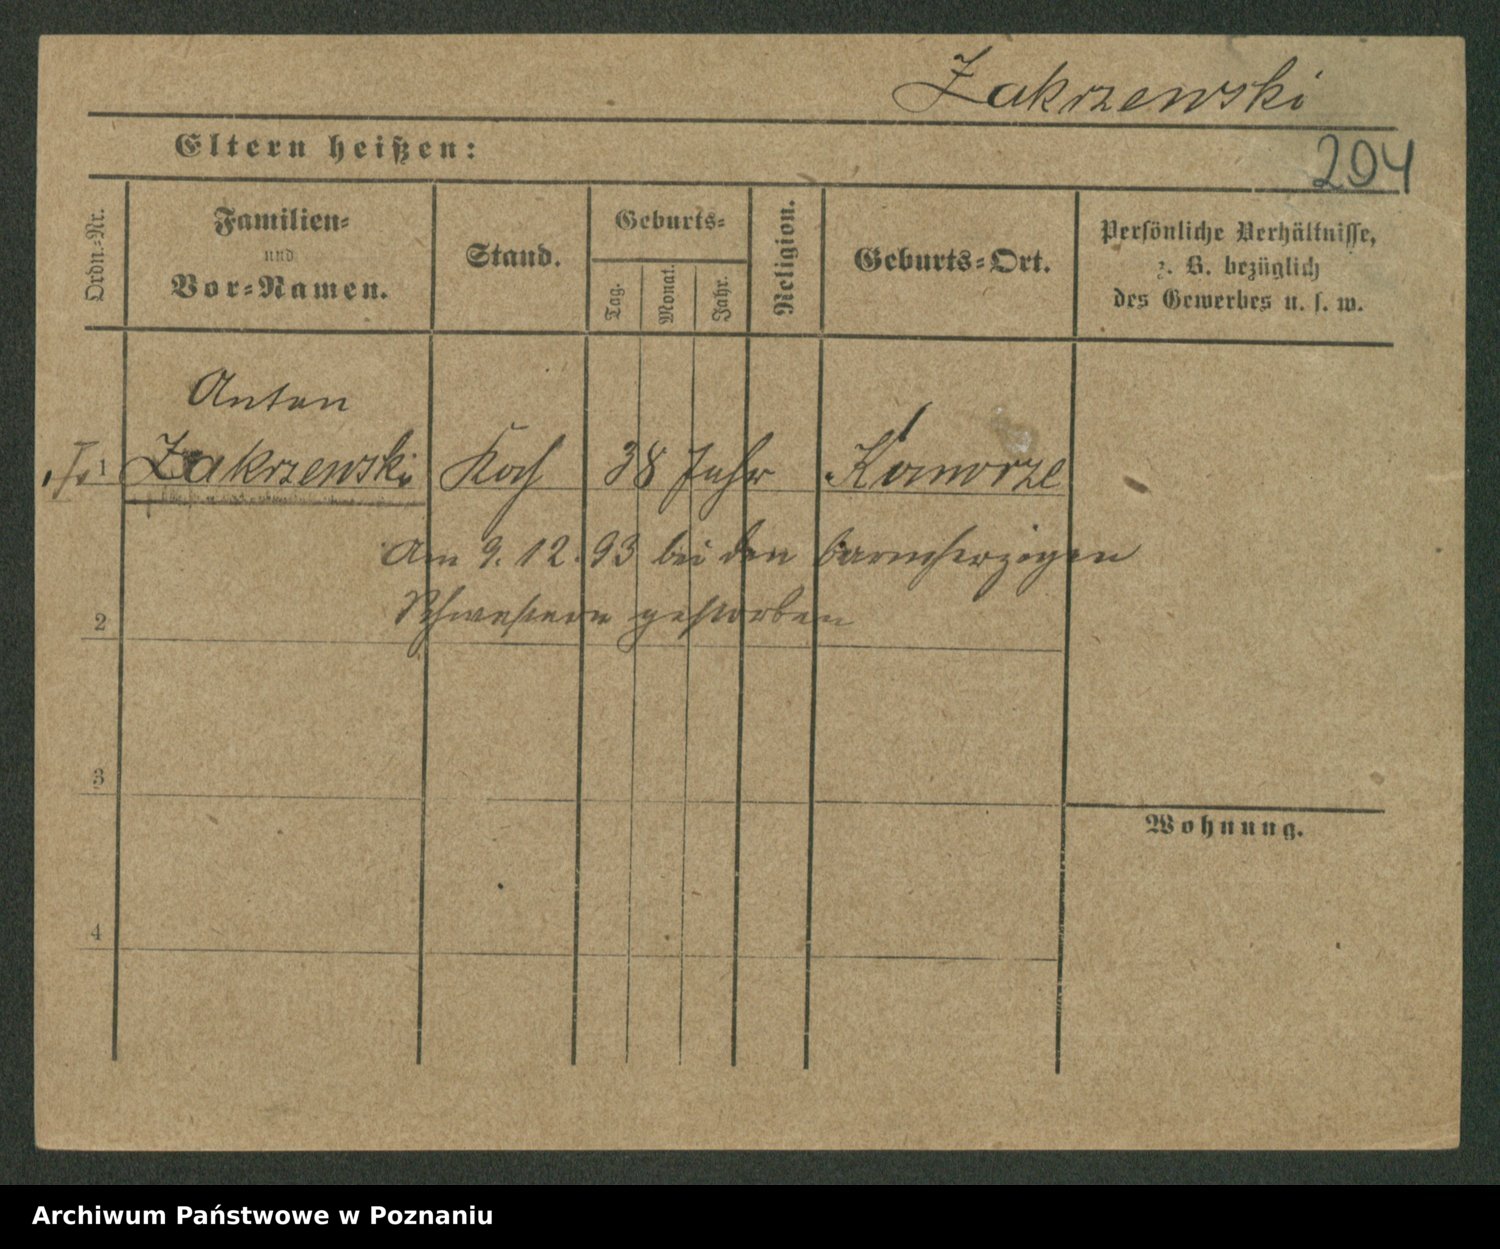 Zakrzewski
Eltern heißen:
294
Ordn.=Nr.
Familien=
und
Vor=Namen.
Stand.
Geburts=
Tag.
Monat.
Jahr.
Religion.
Geburts=Ort.
Persönliche Verhältnisse,
z. B. bezüglich
des Gewerbes u. s. w.
Anton
1 Zakrzewski Koch 38 Jahr Komorze
Am 9. 12. 93 bei den barmherzigen
Schwestern gestorben
2
3
Wohnung.
4
Archiwum Państwowe w Poznaniu